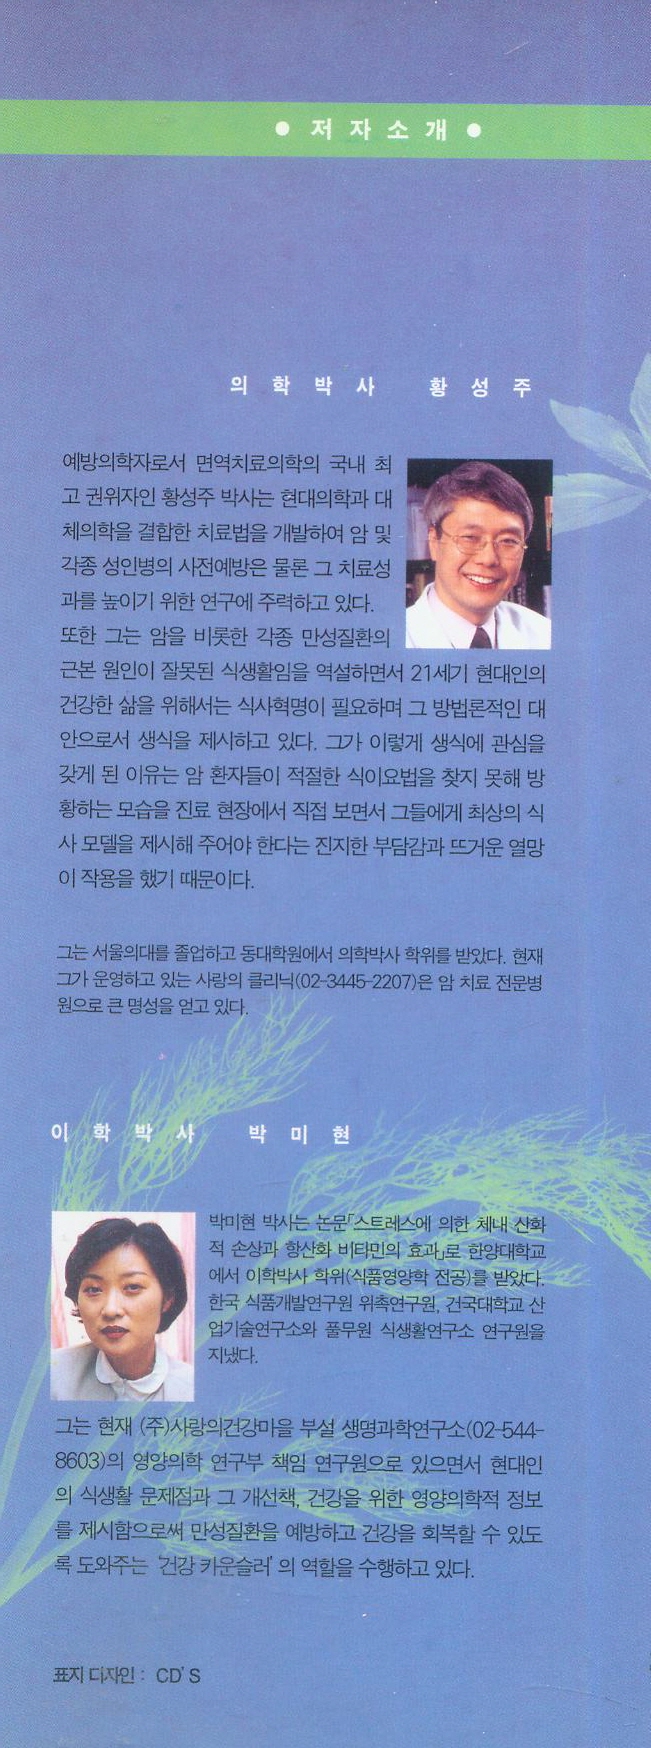 ● 저자소개 ●
의학박사 황성주
예방의학자로서 면역치료의학의 국내 최
고 권위자인 황성주 박사는 현대의학과 대
체의학을 결합한 치료법을 개발하여 암 및
각종 성인병의 사전예방은 물론 그 치료성
과를 높이기 위한 연구에 주력하고 있다.
또한 그는 암을 비롯한 각종 만성질환의
근본 원인이 잘못된 식생활임을 역설하면서 21세기 현대인의
건강한 삶을 위해서는 식사혁명이 필요하며 그 방법론적인 대
안으로서 생식을 제시하고 있다. 그가 이렇게 생식에 관심을
갖게 된 이유는 암 환자들이 적절한 식이요법을 찾지 못해 방
황하는 모습을 진료 현장에서 직접 보면서 그들에게 최상의 식
사 모델을 제시해 주어야 한다는 진지한 부담감과 뜨거운 열망
이 작용을 했기 때문이다.
그는 서울의대를 졸업하고 동대학원에서 의학박사 학위를 받았다. 현재
그가 운영하고 있는 사랑의 클리닉(02-3445-2207)은 암 치료 전문병
원으로 큰 명성을 얻고 있다.
이학박사 박미현
박미현 박사는 논문「스트레스에 의한 체내 산화
적 손상과 항산화 비타민의 효과」로 한양대학교
에서 이학박사 학위(식품영양학 전공)를 받았다.
한국 식품개발연구원 위촉연구원, 건국대학교 산
업기술연구소와 풀무원 식생활연구소 연구원을
지냈다.
그는 현재 (주)사랑의건강마을 부설 생명과학연구소(02-544-
8603)의 영양의학 연구부 책임 연구원으로 있으면서 현대인
의 식생활 문제점과 그 개선책, 건강을 위한 영양의학적 정보
를 제시함으로써 만성질환을 예방하고 건강을 회복할 수 있도
록 도와주는 '건강 카운슬러'의 역할을 수행하고 있다.
표지 디자인 : CD'S